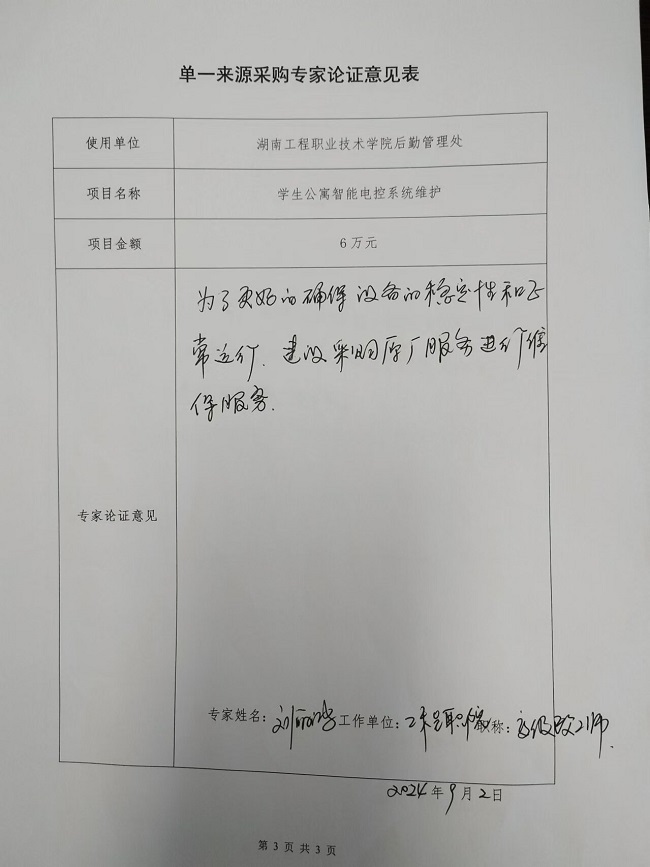 单一来源采购专家论证意见表
使用单位
湖南工程职业技术学院后勤管理处
项目名称
学生公寓智能电控系统维护
项目金额
6万元
专家论证意见
为了更好的确保设备的稳定性和正
常运行.建议采购原厂服务进行维
保服务.
专家姓名：刘丽 工作单位：工程职院 职称：高级 师
2024年9月2日
第 3 页 共 3 页